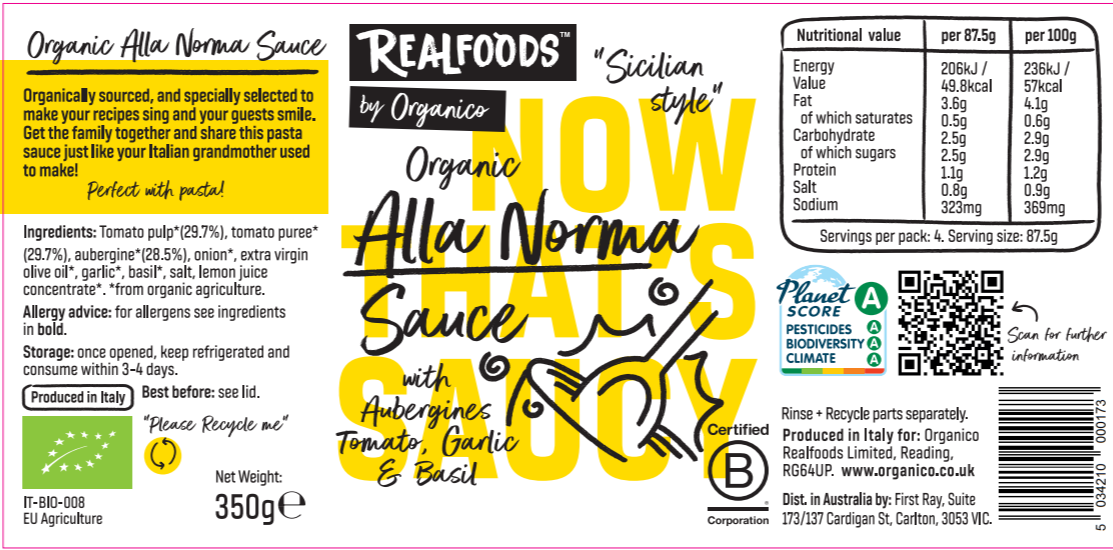 Organic Alla Norma Sauce
Organically sourced, and specially selected to
make your recipes sing and your guests smile.
Get the family together and share this pasta
sauce just like your Italian grandmother used
to make!
Perfect with pasta!
Ingredients: Tomato pulp*(29.7%), tomato puree*
(29.7%), aubergine*(28.5%), onion*, extra virgin
olive oil*, garlic*, basil*, salt, lemon juice
concentrate*. *from organic agriculture.
Allergy advice: for allergens see ingredients
in bold.
Storage: once opened, keep refrigerated and
consume within 3-4 days.
Produced in Italy
Best before: see lid.
"Please Recycle me"
IT-BIO-008
EU Agriculture
Net Weight:
350g℮
REALFOODS™
by Organico
"Sicilian
style"
NOW
THAT'S
SAUCY
Organic
Alla Norma
Sauce
with
Aubergines
Tomato, Garlic
& Basil
Certified
B
®
Corporation
Nutritional value per 87.5g per 100g
Energy 206kJ / 236kJ /
Value 49.8kcal 57kcal
Fat 3.6g 4.1g
of which saturates 0.5g 0.6g
Carbohydrate 2.5g 2.9g
of which sugars 2.5g 2.9g
Protein 1.1g 1.2g
Salt 0.8g 0.9g
Sodium 323mg 369mg
Servings per pack: 4. Serving size: 87.5g
Planet A
SCORE
PESTICIDES A
BIODIVERSITY A
CLIMATE A
Scan for further
information
Rinse + Recycle parts separately.
Produced in Italy for: Organico
Realfoods Limited, Reading,
RG64UP. www.organico.co.uk
Dist. in Australia by: First Ray, Suite
173/137 Cardigan St, Carlton, 3053 VIC.
5 034210 000173